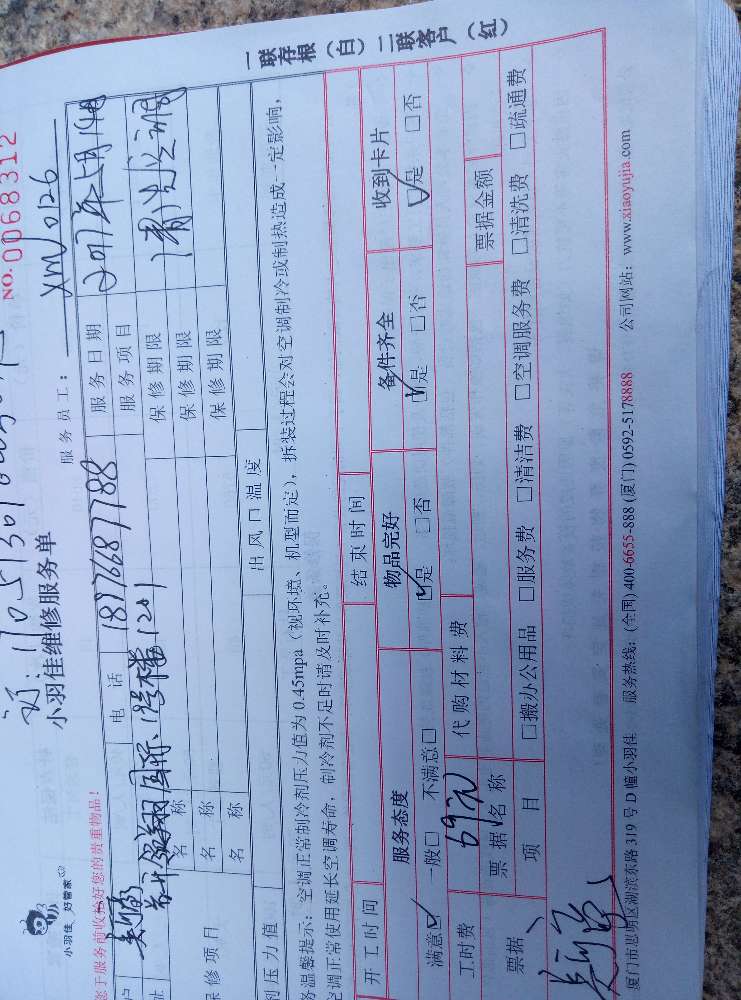 NO.0068312
小羽佳维修服务单
小羽佳 好管家
服务员工: XM0126
您于服务前收拾好您的贵重物品!
户
电 话 18776687788
服务日期 2017年5月14日
址 1号楼1201
服务项目
修项目
名 称
保修期限
名 称
保修期限
名 称
保修期限
剂压力值
出风口温度
务温馨提示:空调正常制冷剂压力值为 0.45mpa(视环境、机型而定),拆装过程会对空调制冷或制热造成一定影响,
空调正常使用延长空调寿命,制冷剂不足时请及时补充。
开工时间
结束时间
服务态度
物品完好
备件齐全
收到卡片
满意☑ 一般□ 不满意□
☑是 □否
☑是 □否
☑是 □否
工时费 69元
代购材料费
票据
票据名称
票据金额
项 目
□搬办公用品 □服务费 □清洁费 □空调服务费 □清洗费 □疏通费
厦门市思明区湖滨东路 319 号 D 幢小羽佳 服务热线:(全国) 400-6655-888 (厦门) 0592-5178888 公司网站:www.xiaoyujia.com
一联存根(白)二联客户(红)